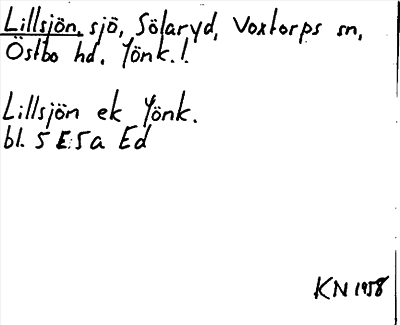 Lillsjön, sjö, Sölaryd, Voxtorps sn,
Östbo hd. Jönk.!
Lillsjön ek Jönk.
bl. 5 E:5a Ed
KN 1958